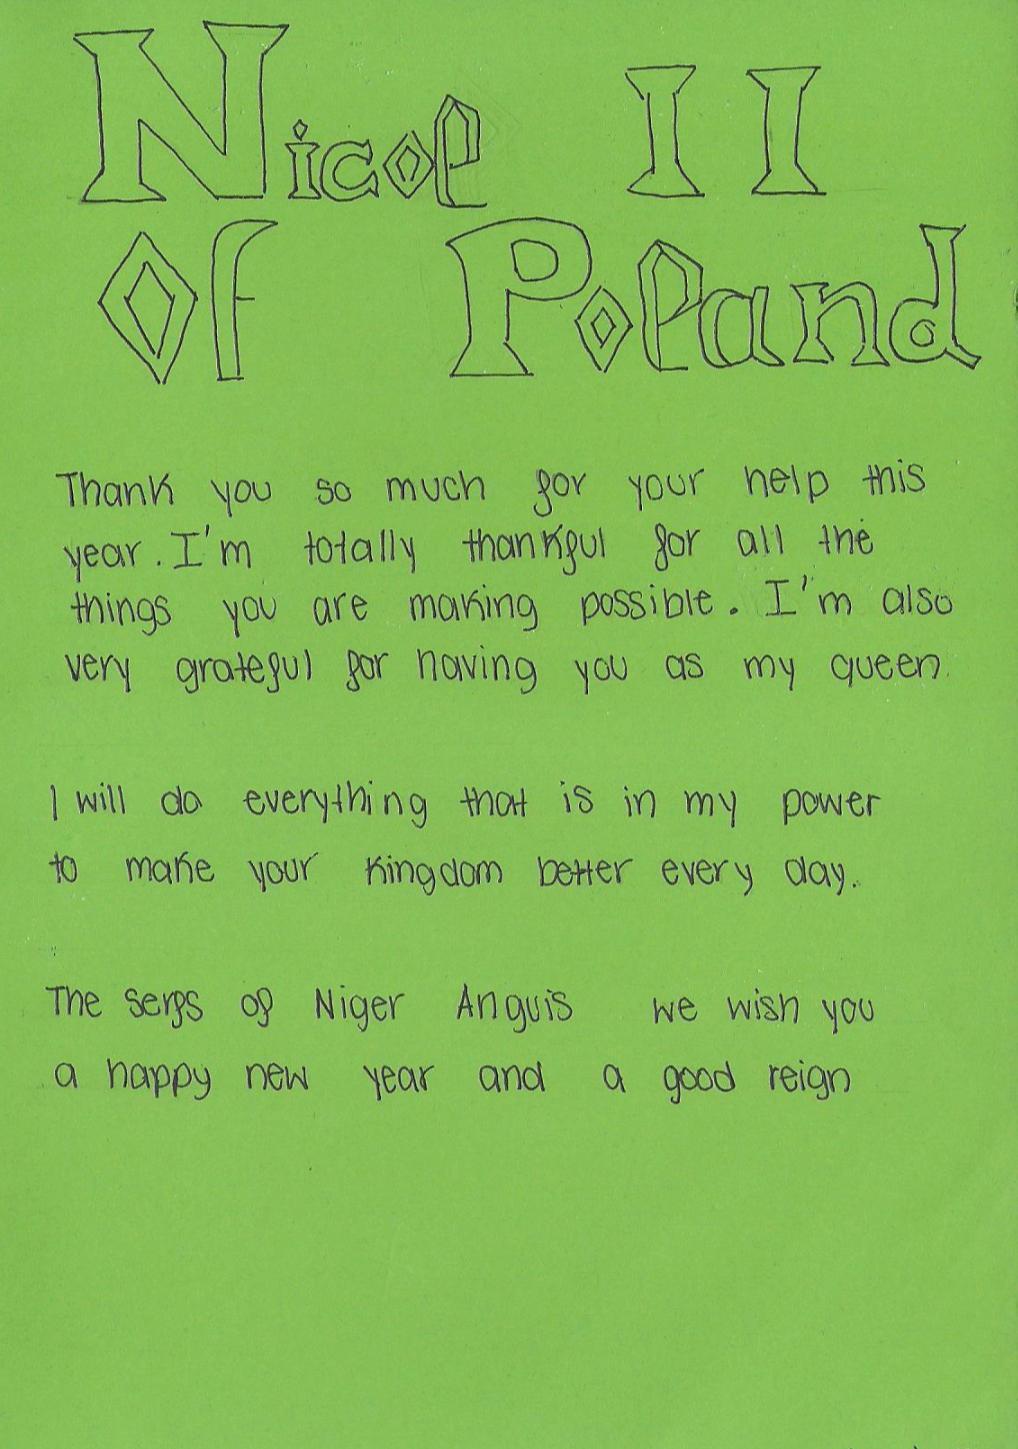 Nicol II
Of Poland
Thank you so much for your help this
year. I'm totally thankful for all the
things you are making possible. I'm also
very grateful for having you as my queen.
I will do everything that is in my power
to make your kingdom better every day.
The serfs of Niger Anguis we wish you
a happy new year and a good reign